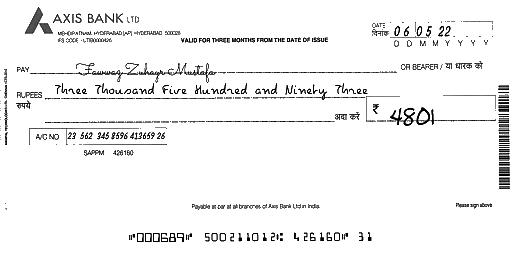 AXIS BANK LTD
MEHDIPATNAM, HYDERABAD [AP] HYDERABAD 500028
IFS CODE - UTIB0000426
VALID FOR THREE MONTHS FROM THE DATE OF ISSUE
DATE
दिनांक 06 05 22
D D M M Y Y Y Y
PAY Fawwaz Zuhayr Mustafa OR BEARER / या धारक को
RUPEES Three Thousand Five Hundred and Ninety Three
रुपये अदा करें ₹ 4801
A/C NO 23 562 345 8596 413659 26
SAPPM 426160
Payable at par at all branches of Axis Bank Ltd in India.
Please sign above
"000689" 500211012: 426160" 31